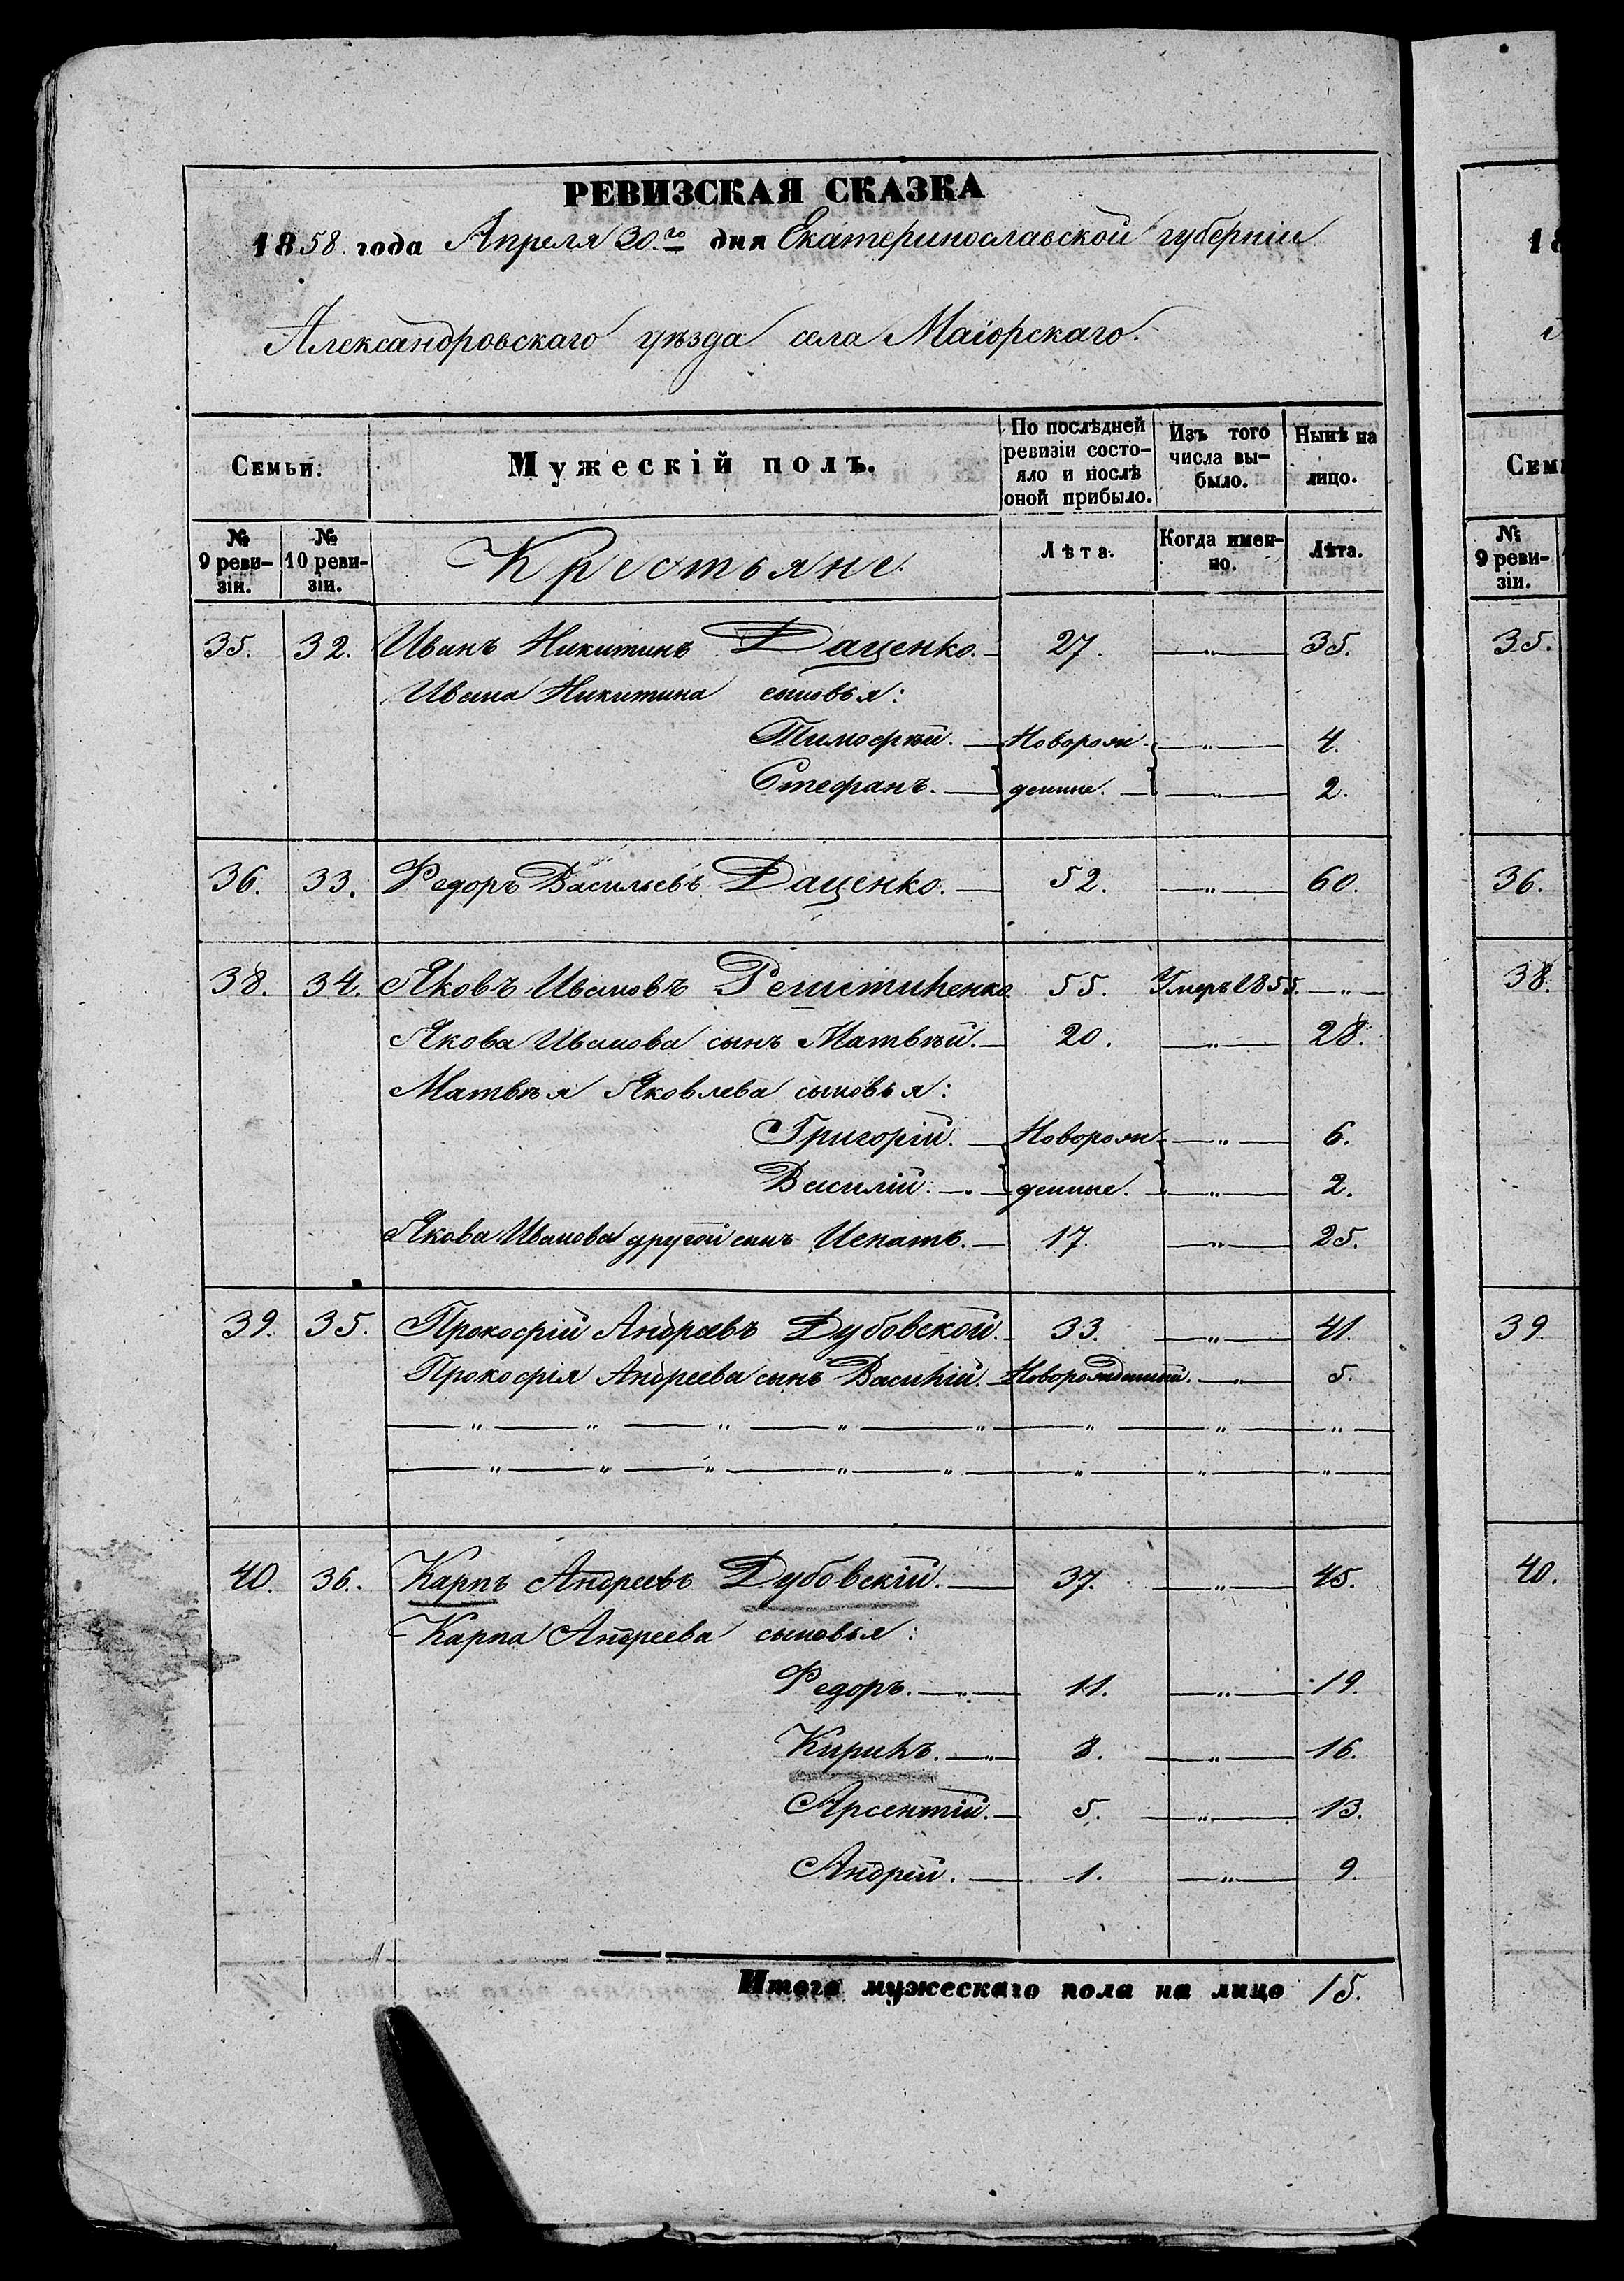 РЕВИЗСКАЯ СКАЗКА
1858. года Апреля 30.го дня Екатеринославской губерніи
Александровскаго уѣзда села Маіорскаго.
Семьи. Мужескій полъ. По послѣдней ревизіи состояло и послѣ оной прибыло. Изъ того числа выбыло. Нынѣ на лицо.
№ 9 ревизіи. № 10 ревизіи. Крестьяне. Лѣта. Когда именно. Лѣта.
35. 32. Иванъ Никитинъ Даценко. 27. — „ — 35.
Ивана Никитина сыновья:
Тимофѣй. — Новорож- — „ — 4.
Стефанъ. — денные. — „ — 2.
36. 33. Федоръ Васильевъ Даценко. — 52. — „ — 60.
38. 34. Яковъ Ивановъ 55. Умеръ 1855. — „ —
Якова Иванова сынъ Матвѣй. — 20. — „ — 28.
Матвѣя Яковлева сыновья:
Григорій. — Новорож- — „ — 6.
Василій. — „ — денные. — „ — 2.
Якова Иванова другой сынъ Игнатъ. — 17. — „ — 25.
39. 35. Прокофій Андреевъ Дубовской. — 33. — „ — 41.
Прокофія Андреева сынъ Василій. — Новорожденный. — „ — 5.
— „ — „ — „ — „ — „ — „ — „ — „ —
— „ — „ — „ — „ — „ — „ — „ — „ —
40. 36. Карпъ Андреевъ Дубовскій. — 37. — „ — 45.
Карпа Андреева сыновья:
Федоръ. — „ — 11. — „ — 19.
Кирикъ. — „ — 8. — „ — 16.
Арсентій. — 5. — „ — 13.
Андрей. — 1. — „ — 9.
Итого мужескаго пола на лицо 15.
18
Сем
№ 9 ревизіи.
35.
36.
38.
39.
40.